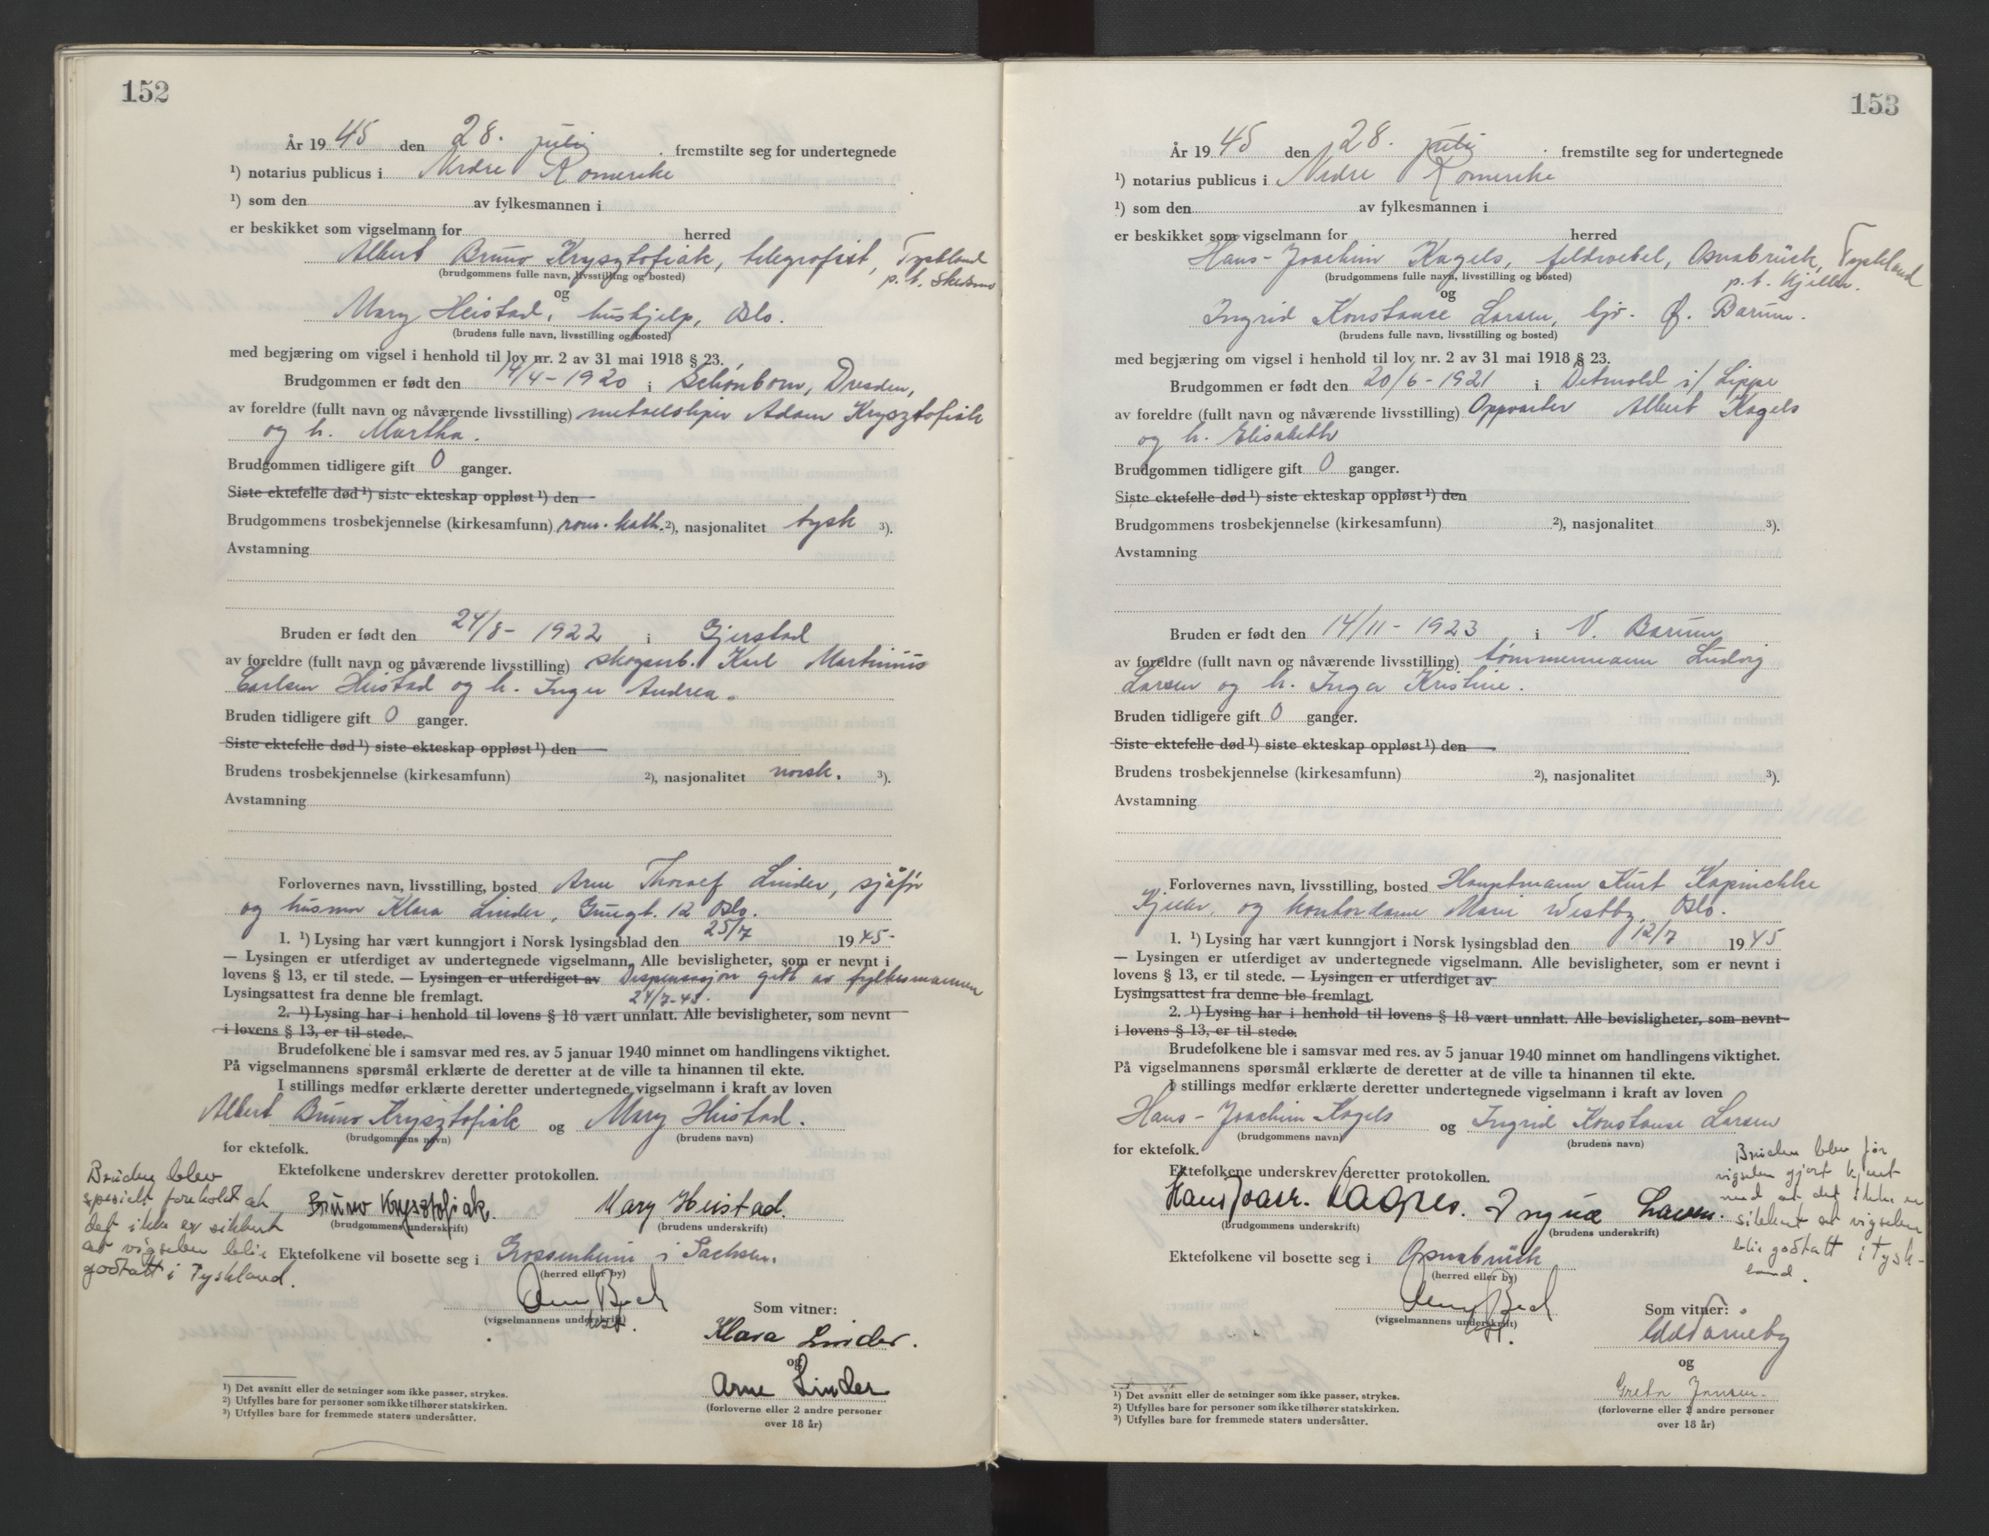 152
År 1945 den 28. juli fremstilte seg for undertegnede
¹) notarius publicus i Nedre Romerike
¹) som den av fylkesmannen i
er beskikket som vigselmann for herred
Albert Bruno Krysztofiak, telegrafist, Tyskland
(brudgommens fulle navn, livsstilling og bosted) p.t. Skedsmo
og
Mary Heistad, hushjelp, Oslo.
(brudens fulle navn, livsstilling og bosted)
med begjæring om vigsel i henhold til lov nr. 2 av 31 mai 1918 § 23.
Brudgommen er født den 14/4-1920 i Schönborn, Dresden,
av foreldre (fullt navn og nåværende livsstilling) Adam Krysztofiak
og h. Martha.
Brudgommen tidligere gift 0 ganger.
Siste ektefelle død ¹) siste ekteskap oppløst ¹) den
Brudgommens trosbekjennelse (kirkesamfunn) rom. kath. ²), nasjonalitet tysk ³).
Avstamning
Bruden er født den 24/8-1922 i Gjerstad
av foreldre (fullt navn og nåværende livsstilling) skogarb. Karl Martinius
Carlsen Heistad og h. Inger Andrea.
Bruden tidligere gift 0 ganger.
Siste ektefelle død ¹) siste ekteskap oppløst ¹) den
Brudens trosbekjennelse (kirkesamfunn) ²), nasjonalitet norsk. ³).
Avstamning
Forlovernes navn, livsstilling, bosted Arne Thoralf Linder, sjåfør
og husmor Klara Linder, 12 Oslo.
1. ¹) Lysing har vært kunngjort i Norsk lysingsblad den 25/7 1945-
— Lysingen er utferdiget av undertegnede vigselmann. Alle bevisligheter, som er nevnt i
lovens § 13, er til stede. — Lysingen er utferdiget av Dispensasjon gitt av fylkesmannen
Lysingsattest fra denne ble fremlagt. 24/7-45.
2. ¹) Lysing har i henhold til lovens § 18 vært unnlatt. Alle bevisligheter, som nevnt
i lovens § 13, er til stede.
Brudefolkene ble i samsvar med res. av 5 januar 1940 minnet om handlingens viktighet.
På vigselmannens spørsmål erklærte de deretter at de ville ta hinannen til ekte.
I stillings medfør erklærte deretter undertegnede vigselmann i kraft av loven
Albert Bruno Krysztofiak og Mary Heistad.
(brudgommens navn) (brudens navn)
for ektefolk.
Ektefolkene underskrev deretter protokollen.
Bruno Krysztofiak. Mary Heistad.
(brudgommens underskrift) (brudens underskrift)
Ektefolkene vil bosette seg i Grossenhein i Sachsen.
(herred eller by)
Bech
(vigselmannens underskrift)
Bruden blev
spesielt foreholdt at
det ikke er sikkert
at vigselen blir
godtatt i Tyskland.
Som vitner:
Klara Linder.
og
Arne Linder
(forloverne eller 2 andre personer
over 18 år)
¹) Det avsnitt eller de setninger som ikke passer, strykes.
²) Utfylles bare for personer som ikke tilhører statskirken.
³) Utfylles bare for fremmede staters undersåtter.
153
År 1945 den 28. juli fremstilte seg for undertegnede
¹) notarius publicus i Nedre Romerike
¹) som den av fylkesmannen i
er beskikket som vigselmann for herred
Hans-Joachim Kagels, feldwebel, Osnabrück, Tyskland
(brudgommens fulle navn, livsstilling og bosted) p.t. Kjeller.
og
Ingrid Konstanse Larsen, Ø. Bærum.
(brudens fulle navn, livsstilling og bosted)
med begjæring om vigsel i henhold til lov nr. 2 av 31 mai 1918 § 23.
Brudgommen er født den 20/6-1921 i Detmold i/ Lippe
av foreldre (fullt navn og nåværende livsstilling) Oppvarter Albert Kagels
og h. Elisabeth
Brudgommen tidligere gift 0 ganger.
Siste ektefelle død ¹) siste ekteskap oppløst ¹) den
Brudgommens trosbekjennelse (kirkesamfunn) ²), nasjonalitet ³).
Avstamning
Bruden er født den 14/11-1923 i V. Bærum
av foreldre (fullt navn og nåværende livsstilling) tømmermann Ludvig
Larsen og h. Inga Kristine.
Bruden tidligere gift 0 ganger.
Siste ektefelle død ¹) siste ekteskap oppløst ¹) den
Brudens trosbekjennelse (kirkesamfunn) ²), nasjonalitet ³).
Avstamning
Forlovernes navn, livsstilling, bosted Hauptmann Kurt
Kjeller, og kontordame Marie Westby, Oslo.
1. ¹) Lysing har vært kunngjort i Norsk lysingsblad den 12/7 1945
— Lysingen er utferdiget av undertegnede vigselmann. Alle bevisligheter, som er nevnt i
lovens § 13, er til stede. — Lysingen er utferdiget av
Lysingsattest fra denne ble fremlagt.
2. ¹) Lysing har i henhold til lovens § 18 vært unnlatt. Alle bevisligheter, som nevnt
i lovens § 13, er til stede.
Brudefolkene ble i samsvar med res. av 5 januar 1940 minnet om handlingens viktighet.
På vigselmannens spørsmål erklærte de deretter at de ville ta hinannen til ekte.
I stillings medfør erklærte deretter undertegnede vigselmann i kraft av loven
Hans-Joachim Kagels og Ingrid Konstanse Larsen
(brudgommens navn) (brudens navn)
for ektefolk.
Ektefolkene underskrev deretter protokollen.
Hans Larsen.
(brudgommens underskrift) (brudens underskrift)
Ektefolkene vil bosette seg i Osnabrück
(herred eller by)
Bech
(vigselmannens underskrift)
Bruden blev før
vigselen gjort kjent
med at det ikke er
sikkert at vigselen
blir godtatt i Tysk-
land.
Som vitner:
og
Greta Jansen.
(forloverne eller 2 andre personer
over 18 år)
¹) Det avsnitt eller de setninger som ikke passer, strykes.
²) Utfylles bare for personer som ikke tilhører statskirken.
³) Utfylles bare for fremmede staters undersåtter.